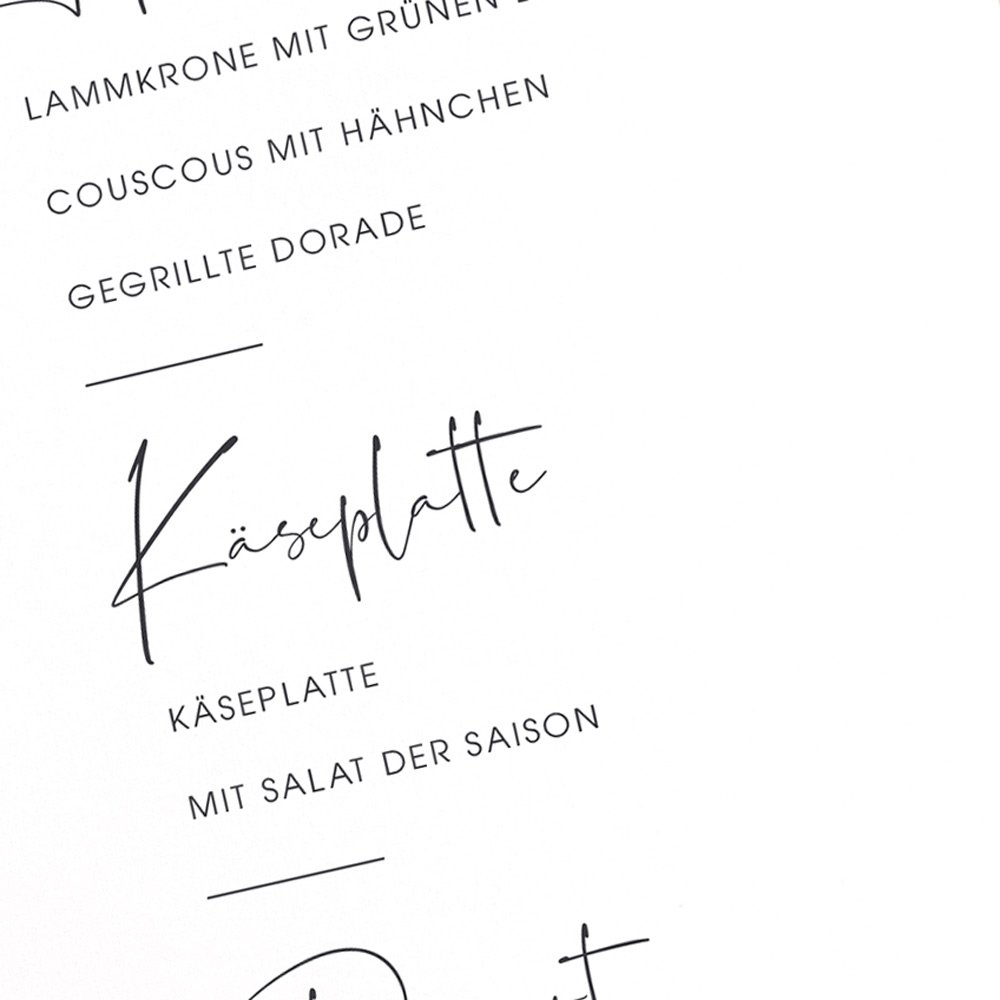 LAMMKRONE MIT GRÜNEN
COUSCOUS MIT HÄHNCHEN
GEGRILLTE DORADE
Käseplatte
KÄSEPLATTE
MIT SALAT DER SAISON